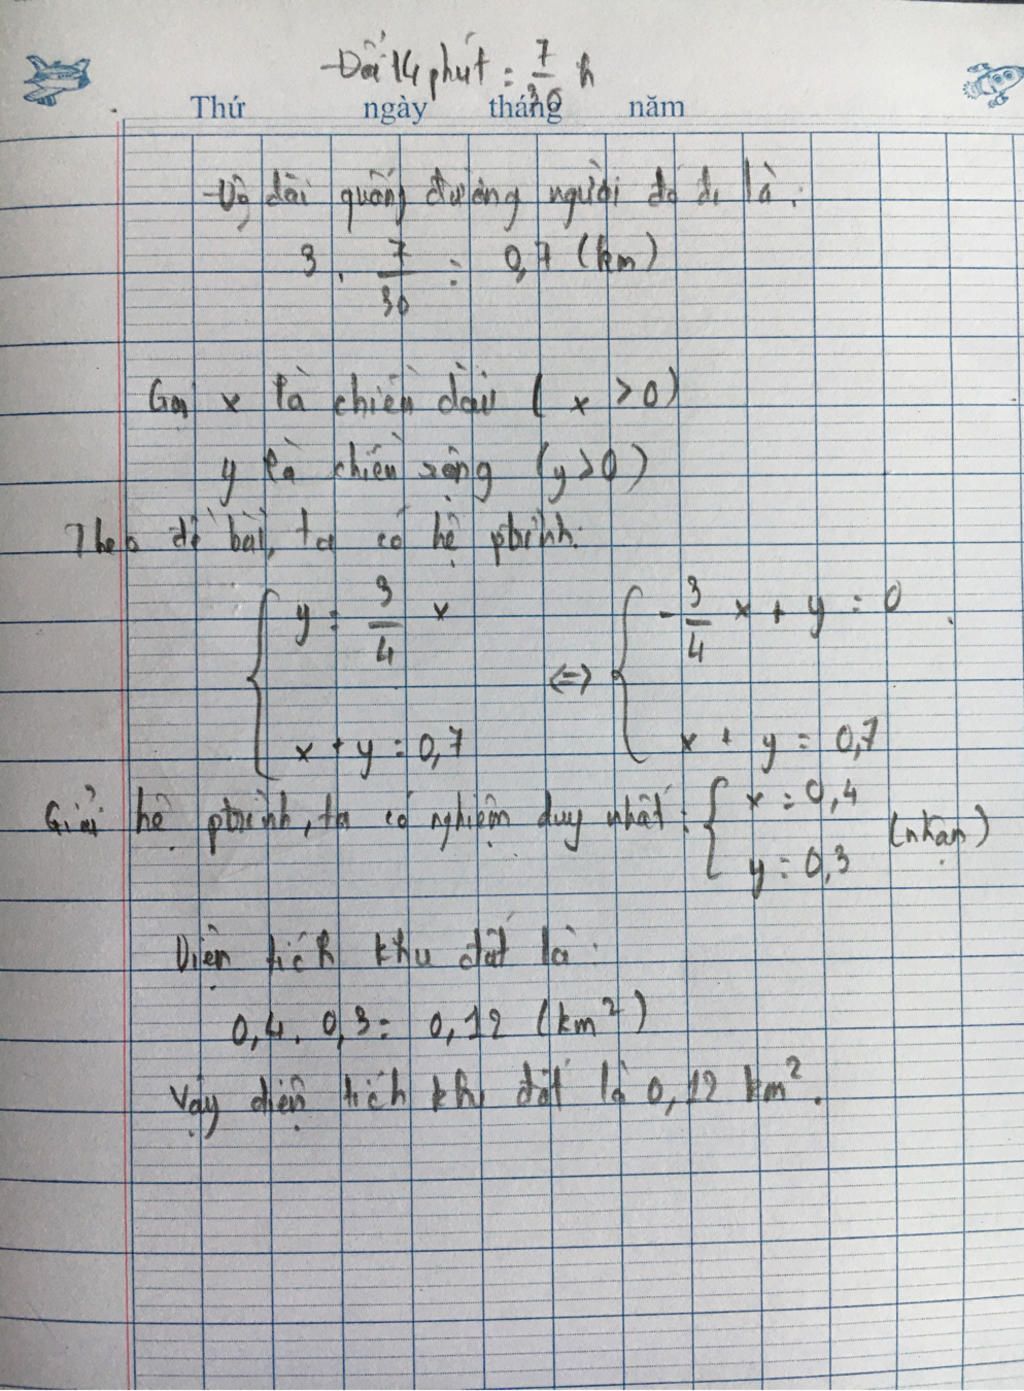 -Đổi 14 phút = 7/30 h
Thứ ngày tháng năm
-Độ dài quãng đường người đó đi là:
3 . 7/30 = 0,7 (km)
Gọi x là chiều dài (x > 0)
y là chiều rộng (y > 0)
Theo đề bài, ta có hệ ptrình:
{ y = 3/4 x <=> { -3/4 x + y = 0
x + y = 0,7 x + y = 0,7
Giải hệ ptrình, ta có nghiệm duy nhất: { x = 0,4
y = 0,3 (nhận)
Diện tích khu đất là:
0,4 . 0,3 = 0,12 (km²)
Vậy diện tích khu đất là 0,12 km².